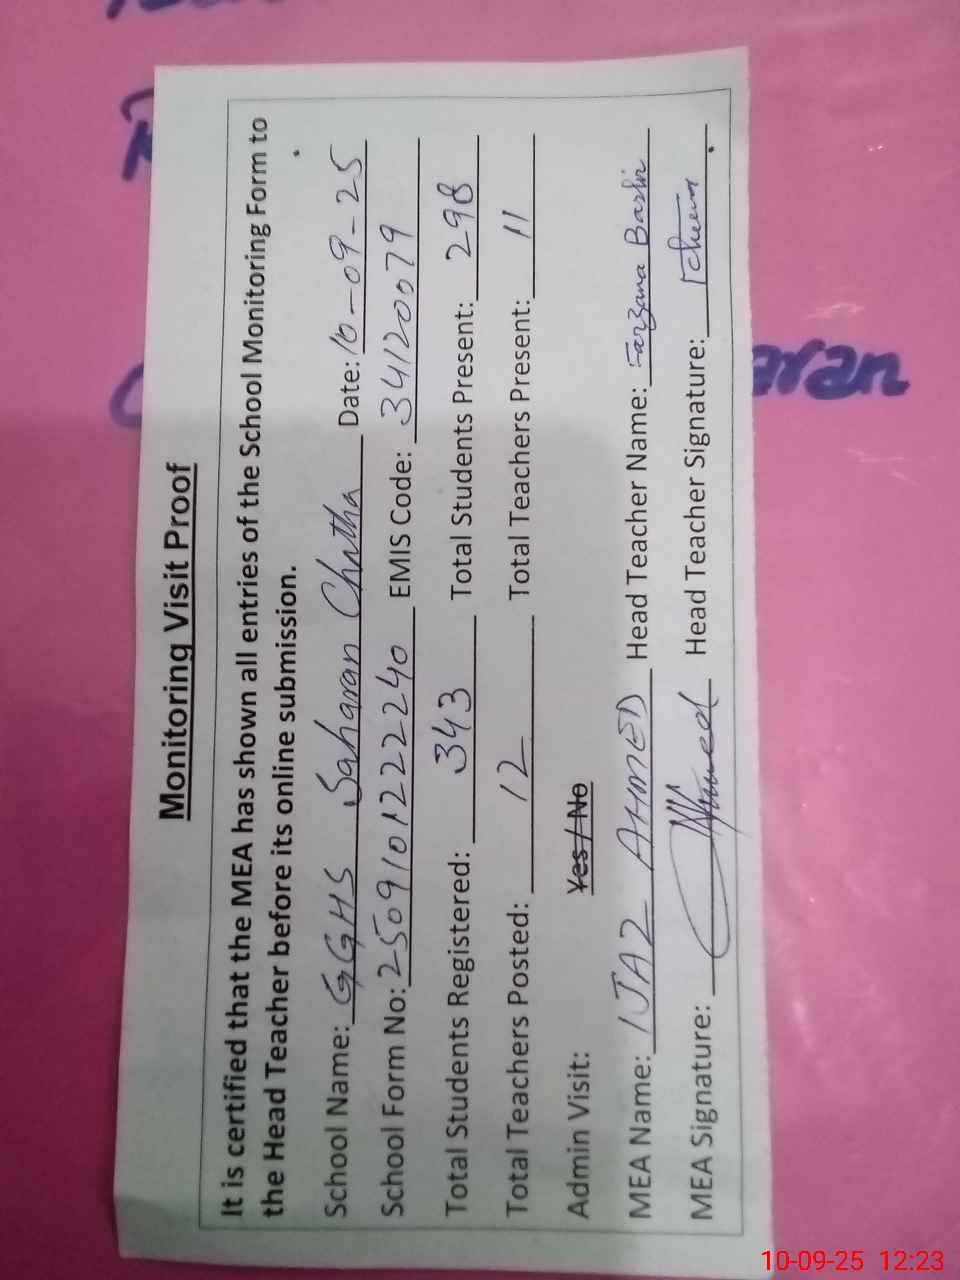 Monitoring Visit Proof
It is certified that the MEA has shown all entries of the School Monitoring Form to
the Head Teacher before its online submission.
School Name: GGHS Saharan Chatha Date: 10-09-25
School Form No: 2509101222240 EMIS Code: 34120079
Total Students Registered: 343 Total Students Present: 298
Total Teachers Posted: 12 Total Teachers Present: 11
Admin Visit: Yes / No
MEA Name: IJAZ AHMED Head Teacher Name: Farzana Bashir
MEA Signature: Ahmed Head Teacher Signature:
aran
10-09-25 12:23